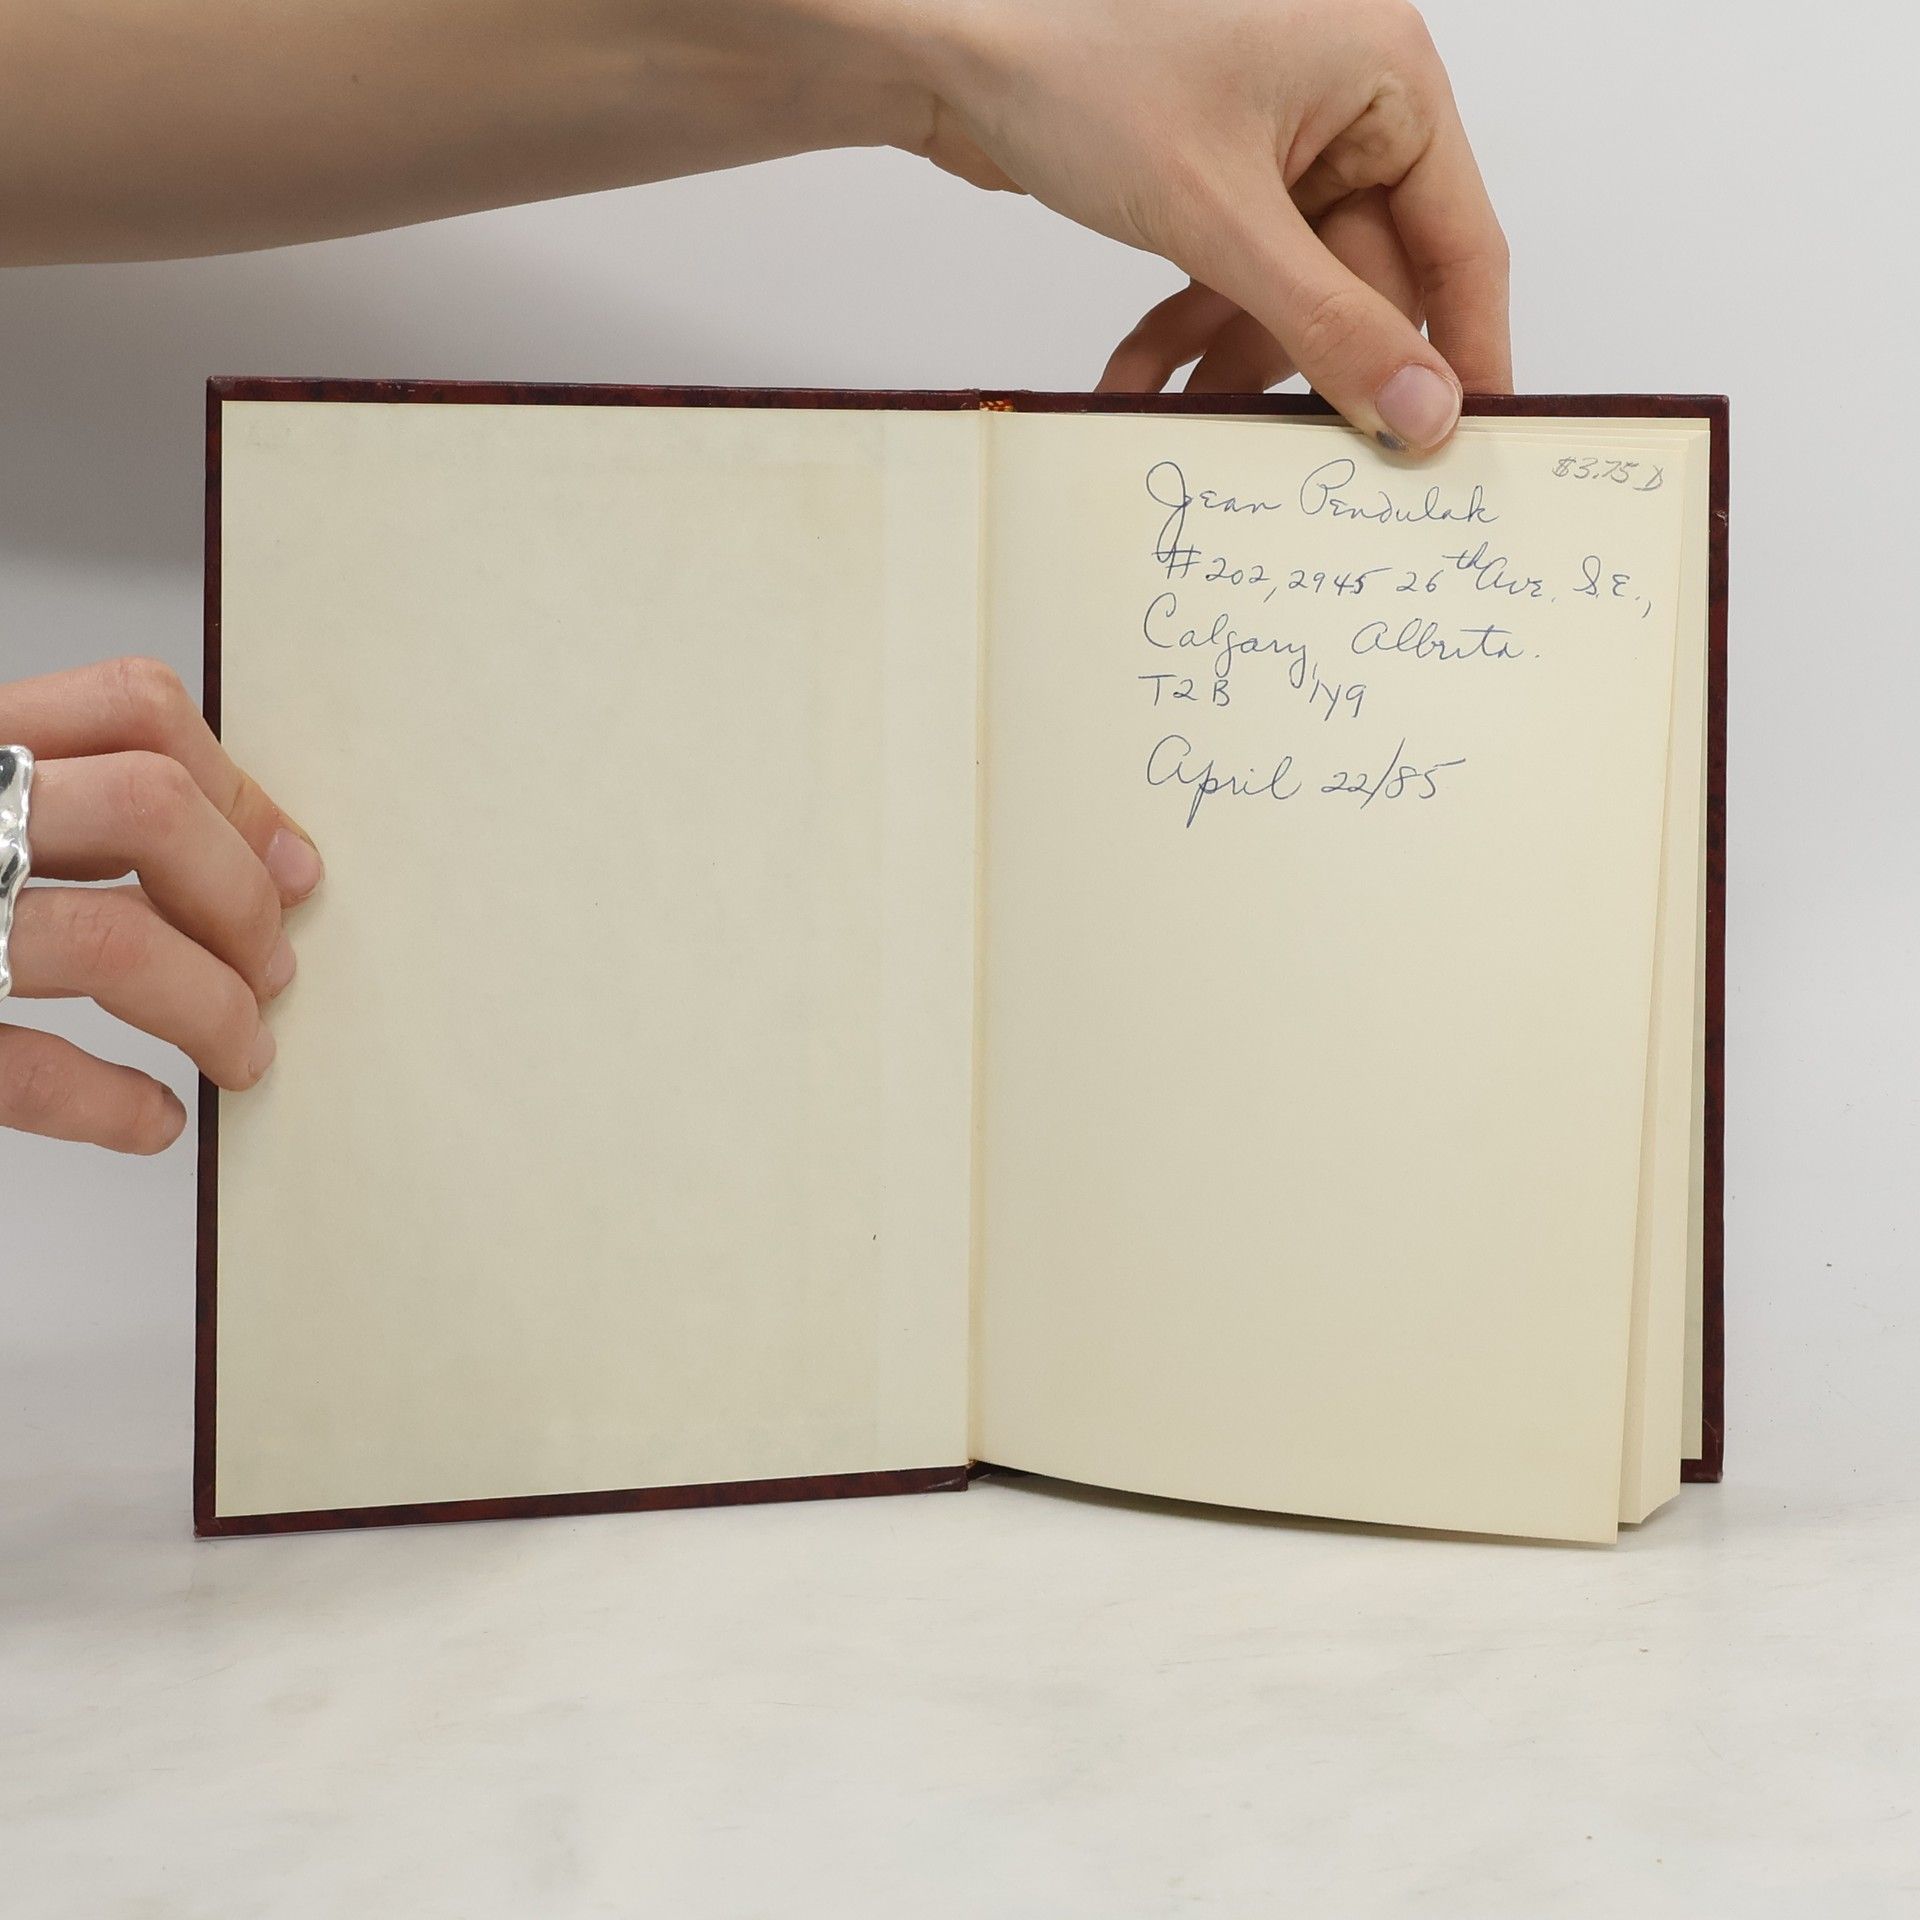 $3.75 D
Jean Pendulak
#202, 2945 26th Ave. S.E.,
Calgary, Alberta.
T2B 1Y9
April 22/85